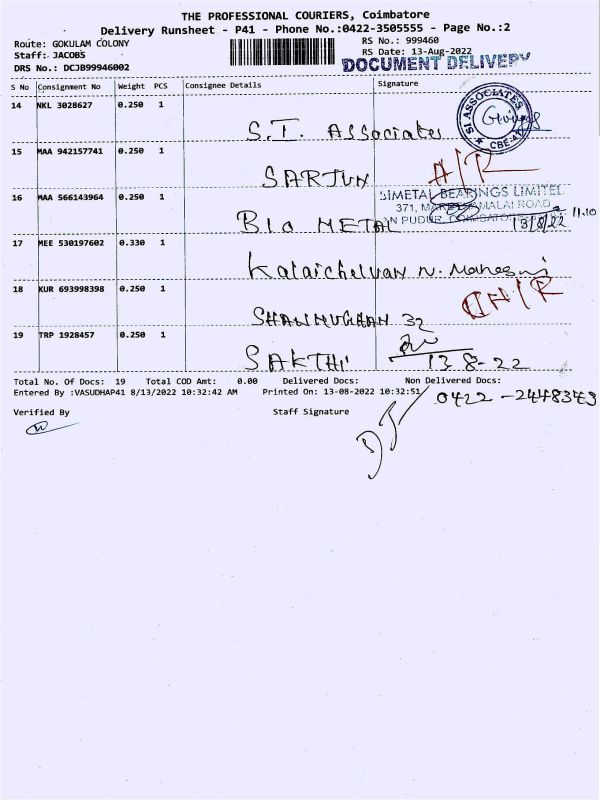 THE PROFESSIONAL COURIERS, Coimbatore
Delivery Runsheet - P41 - Phone No.:0422-3505555 - Page No.:2
Route: GOKULAM COLONY RS No.: 999460
Staff: JACOBS RS Date: 13-Aug-2022
DRS No.: DCJB99946002 DOCUMENT DELIVERY
S No Consignment No Weight PCS Consignee Details Signature
14 NKL 3028627 0.250 1 S.I. Associates
SI ASSOCIATES CBE-4
15 MAA 942157741 0.250 1 SARJUN
16 MAA 566143964 0.250 1 BIO METAL
BIMETAL BEARINGS LIMITED
371, MARUDAMALAI ROAD
13/8/22 11.10
17 MEE 530197602 0.330 1 Kalaichelvan N.
18 KUR 693998398 0.250 1 SHANMUGHAN 32
19 TRP 1928457 0.250 1 SAKTHI 13-8-22
Total No. Of Docs: 19 Total COD Amt: 0.00 Delivered Docs: Non Delivered Docs:
Entered By :VASUDHAP41 8/13/2022 10:32:42 AM Printed On: 13-08-2022 10:32:51 0422-2448343
Verified By Staff Signature